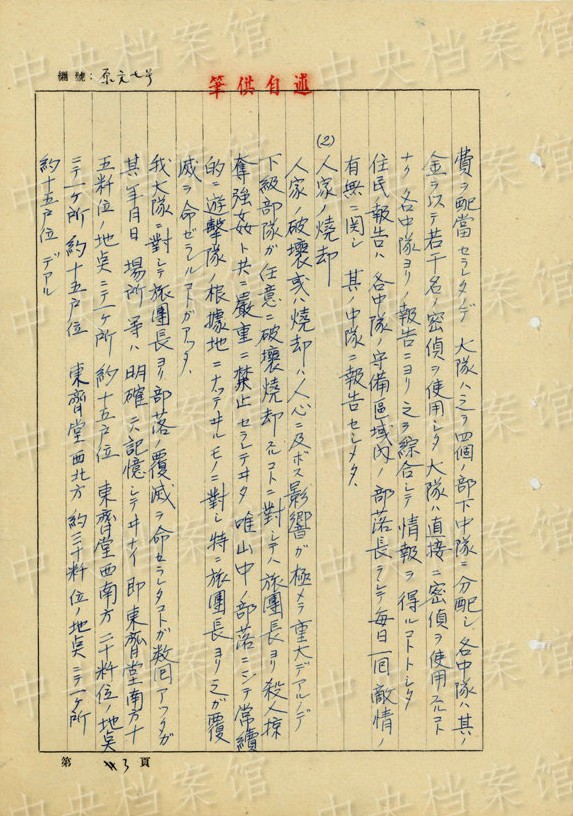 中央档案馆
編號：
述自供筆
費ヲ配當セラレタノデ 大隊ハ之ヲ四個ノ部下中隊ニ分配シ 各中隊ハ其ノ
金ヲ以テ若干名ノ密偵ヲ使用シタ 大隊ハ直接ニ密偵ヲ使用スルコト
ナク 各中隊ヨリノ報告ニヨリ 之ヲ綜合シテ 情報ヲ得ルコトトシタ
住民報告ハ 各中隊ノ守備區域内ノ 部落長ヲシテ 毎日一回 敵情ノ
有無ニ関シ 其ノ中隊ニ報告セシメタ、
(2) 人家ノ燒却
人家ノ破壞或ハ燒却ハ 人心ニ及ボス影響ガ 極メテ重大デアルノデ
下級部隊ガ任意ニ破壞燒却スルコトニ對シテハ 旅團長ヨリ殺人掠
奪強姦ト共ニ嚴重ニ禁止セラレテヰタ 唯山中ノ部落ニシテ常續
的ニ遊擊隊ノ根據地ニナッテヰルモノニ對シ 特ニ旅團長ヨリ之ガ覆
滅ヲ命ゼラレルコトガアッタ、
我大隊ニ對シテ旅團長ヨリ部落ノ覆滅ヲ命セラレタコトガ數回アッタガ
其ノ年月日 場所 等ハ 明確ニハ記憶シテヰナイ 即 東齊堂南方十
五粁位ノ地点ニテ一ケ所 約十五戸位 東齊堂西南方二十粁位ノ地点
ニテ一ケ所 約十五戸位 東齊堂西北方 約三十粁位ノ地点ニテ一ケ所
約十五戸位 デアル
第 3 頁